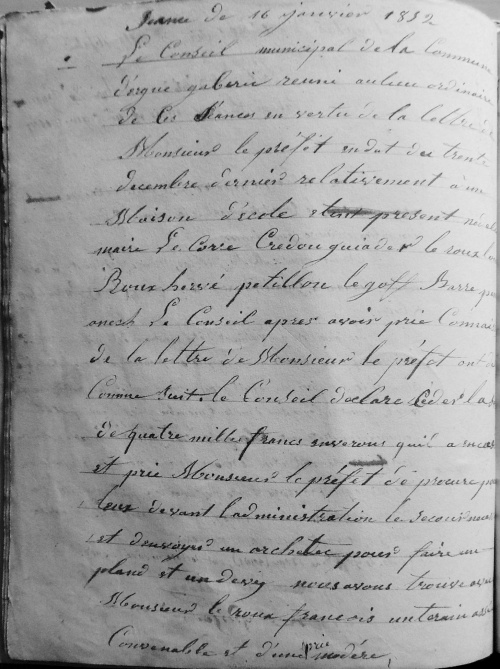 Seance de 16 janvier 1852
Le Conseil municipal de la Commune
d'ergue gaberic reuni au lieu ordinaire
de ces séances en vertu de la lettre
Monsieur le préfet en dat du trente
decembre dernier relativement à une
Maison d'école etant present
maire Le Corre Credou guiader le roux
Roux hervé petillon le goff Barre
Le Conseil apres avoir prie Connais
de la lettre de Monsieur le préfet ont
Comme suit. le Conseil declare Ceder la
de quatre mille francs enverons qui
et prie Monsieur le préfet de procure
leur devant l'administration le secours
et d'envoyer un archetec pour faire un
pland et un devis nous avons trouve
Monsieur le roux francois un terain
Convenable et d'une prie modéré,